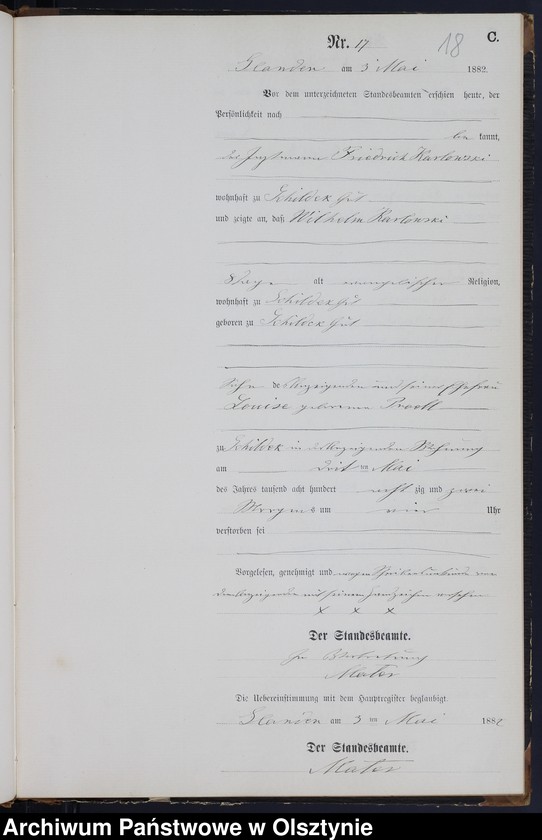 Nr. 17
18
C.
Glanden am 3 Mai 1882.
Vor dem unterzeichneten Standesbeamten erschien heute, der
Persönlichkeit nach
be kannt,
der Friedrich Karlowski
wohnhaft zu Schildek Gut
und zeigte an, daß Wilhelm Karlowski
alt evangelischer Religion,
wohnhaft zu Schildek Gut
geboren zu Schildek Gut
Sohn des Anzeigenden und seiner Ehefrau
Louise geborene
zu Schildek in des Anzeigenden Wohnung
am ten Mai
des Jahres tausend acht hundert acht zig und zwei
Morgens um vier Uhr
verstorben sei
Vorgelesen, genehmigt und wegen Schreibensunkunde von
dem Anzeigenden mit seinem Handzeichen versehen
x x x
Der Standesbeamte.
In Vertretung
Mater
Die Uebereinstimmung mit dem Hauptregister beglaubigt.
Glanden am 3 ten Mai 1882
Der Standesbeamte.
Mater
Archiwum Państwowe w Olsztynie